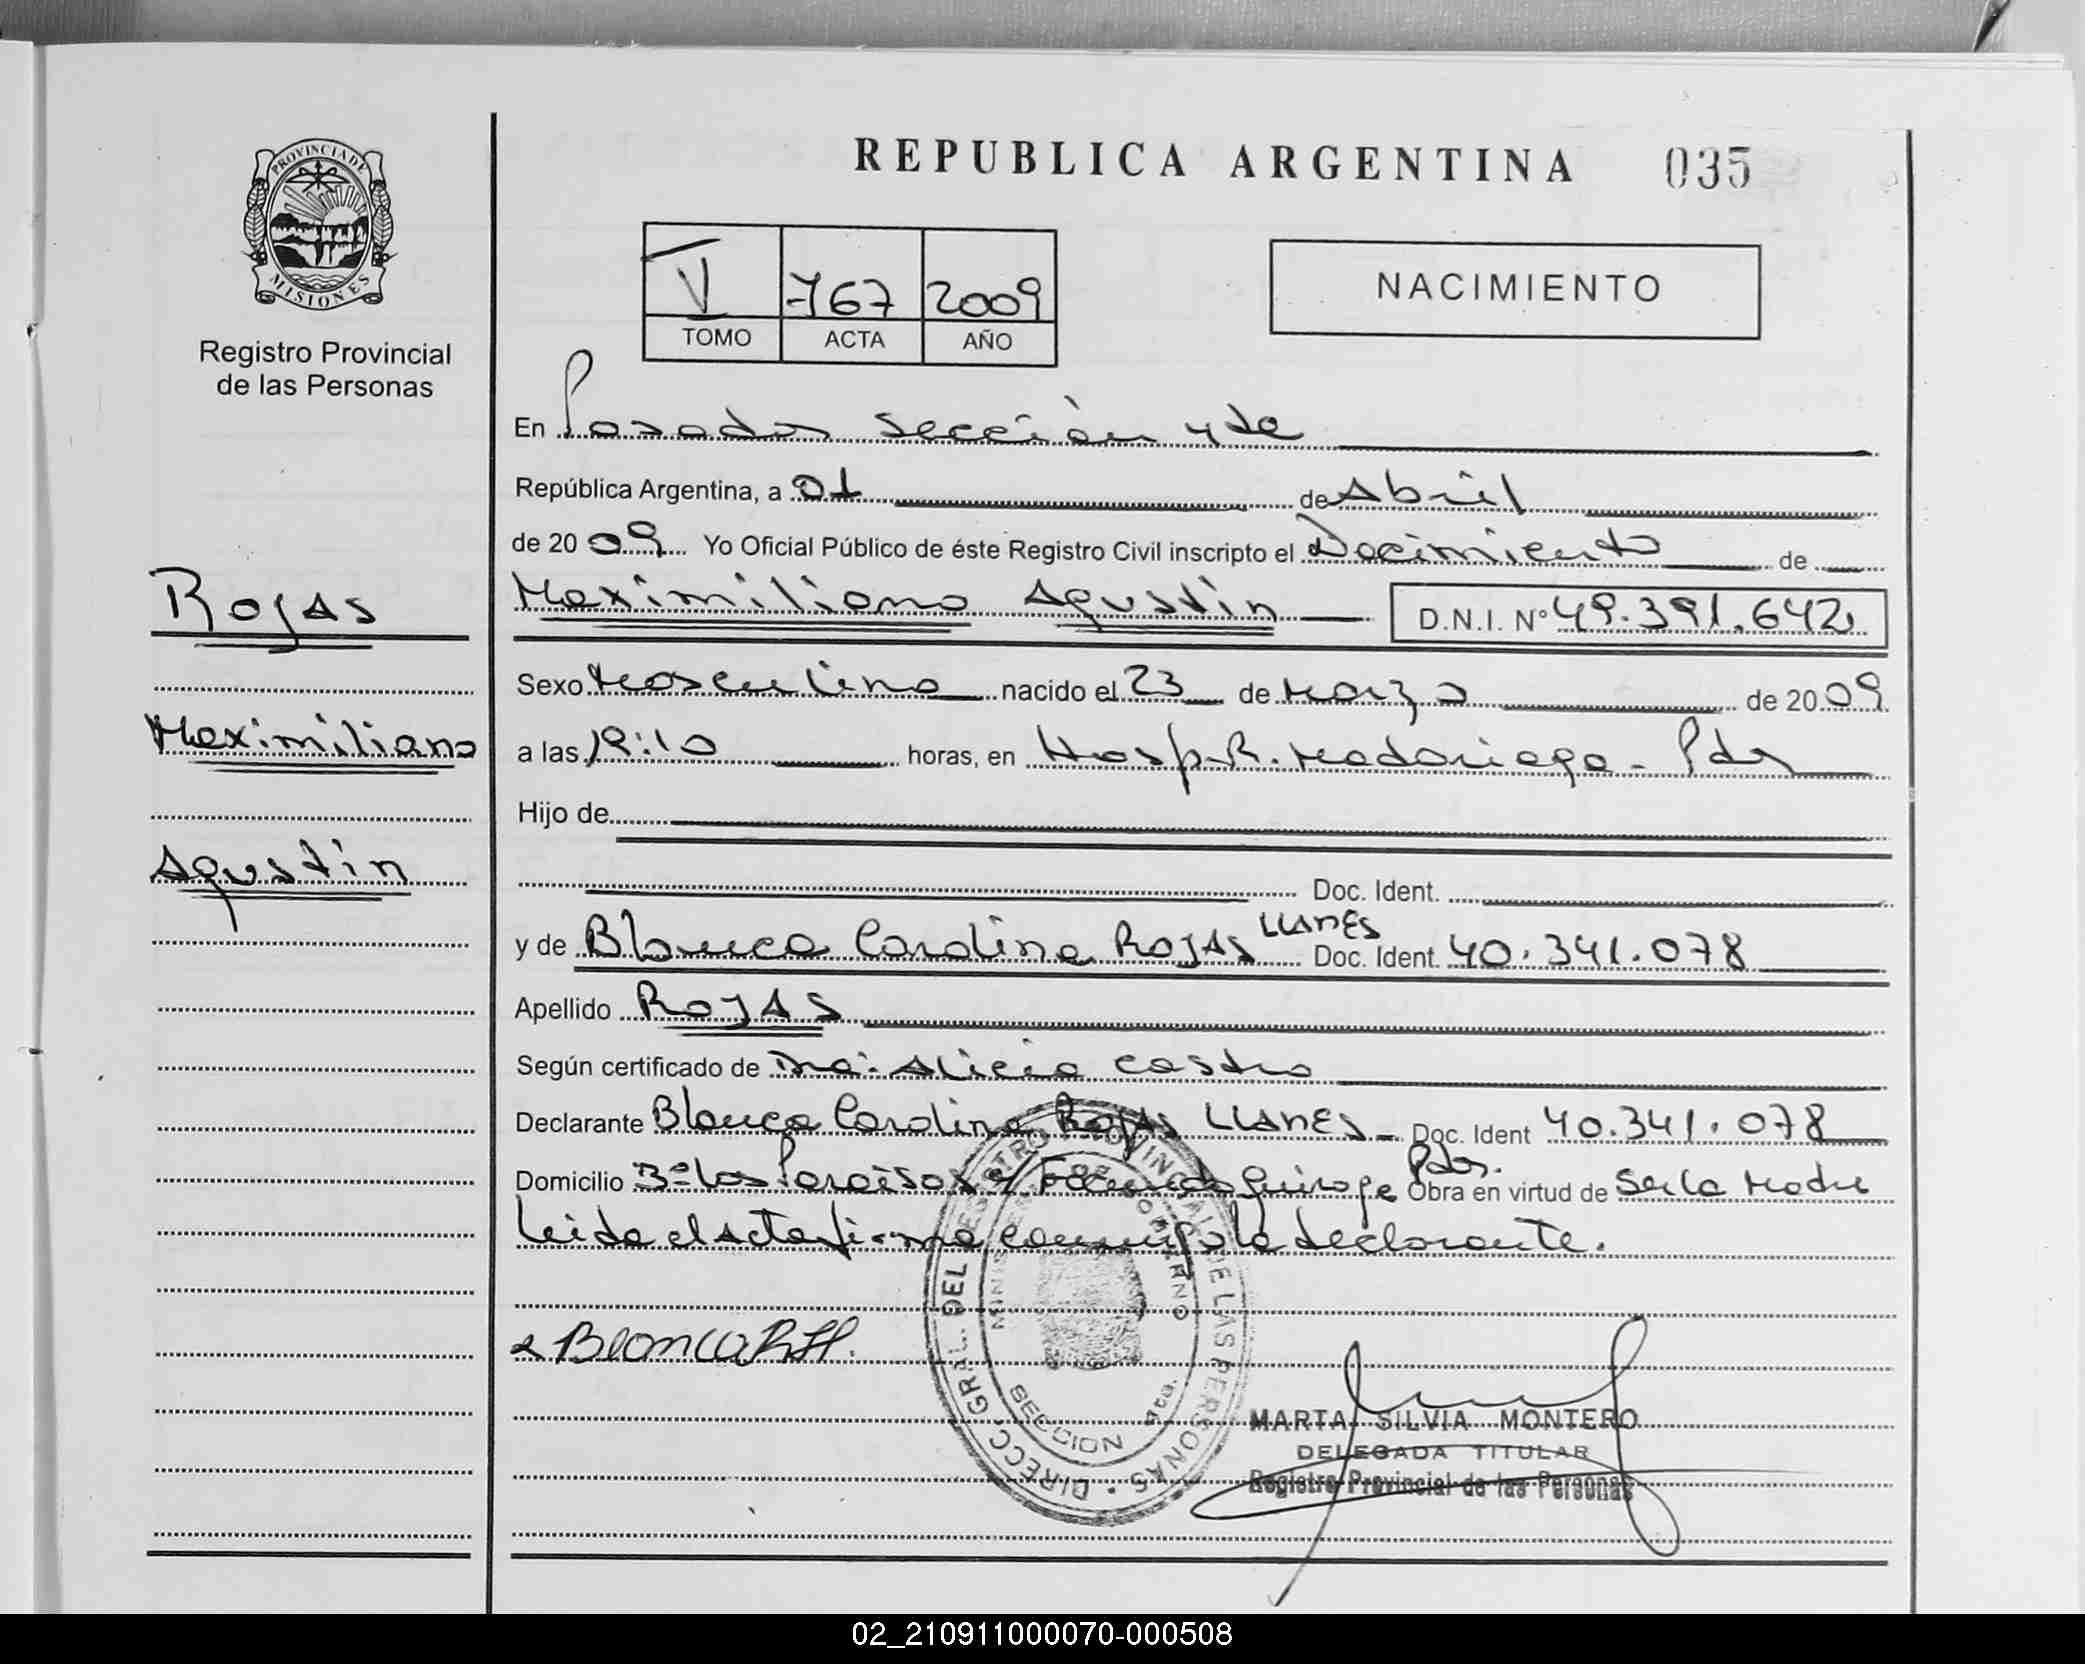 REPUBLICA ARGENTINA 035
PROVINCIA DE
MISIONES
Registro Provincial
de las Personas
V 767 2009
TOMO ACTA AÑO
NACIMIENTO
En Posadas Sección 4ta
República Argentina, a 01 de Abril
de 2009 Yo Oficial Público de éste Registro Civil inscripto el Nacimiento de
Rojas
Maximiliano Agustín D.N.I. Nº 49.391.642
Sexo Masculino nacido el 23 de Marzo de 2009
Maximiliano
a las 19:10 horas, en Hosp. R. Madariaga - Pdas
Hijo de
Agustín
Doc. Ident.
y de Blanca Carolina ROJAS LLANES Doc. Ident. 40.341.078
Apellido ROJAS
Según certificado de Dra: Alicia Castro
Declarante Blanca Carolina Rojas LLANES - Doc. Ident 40.341.078
Domicilio Bº Los Paraísos y Facundo Quiroga Pdas. Obra en virtud de Ser la Madre
Leida el Acta firma conmigo la declarante.
Blanca
DIRECC. GRAL. DEL REGISTRO PROVINCIAL DE LAS PERSONAS
GOBIERNO
SECCION 4ta.
MARTA SILVIA MONTERO
DELEGADA TITULAR
Registro Provincial de las Personas
02_210911000070-000508